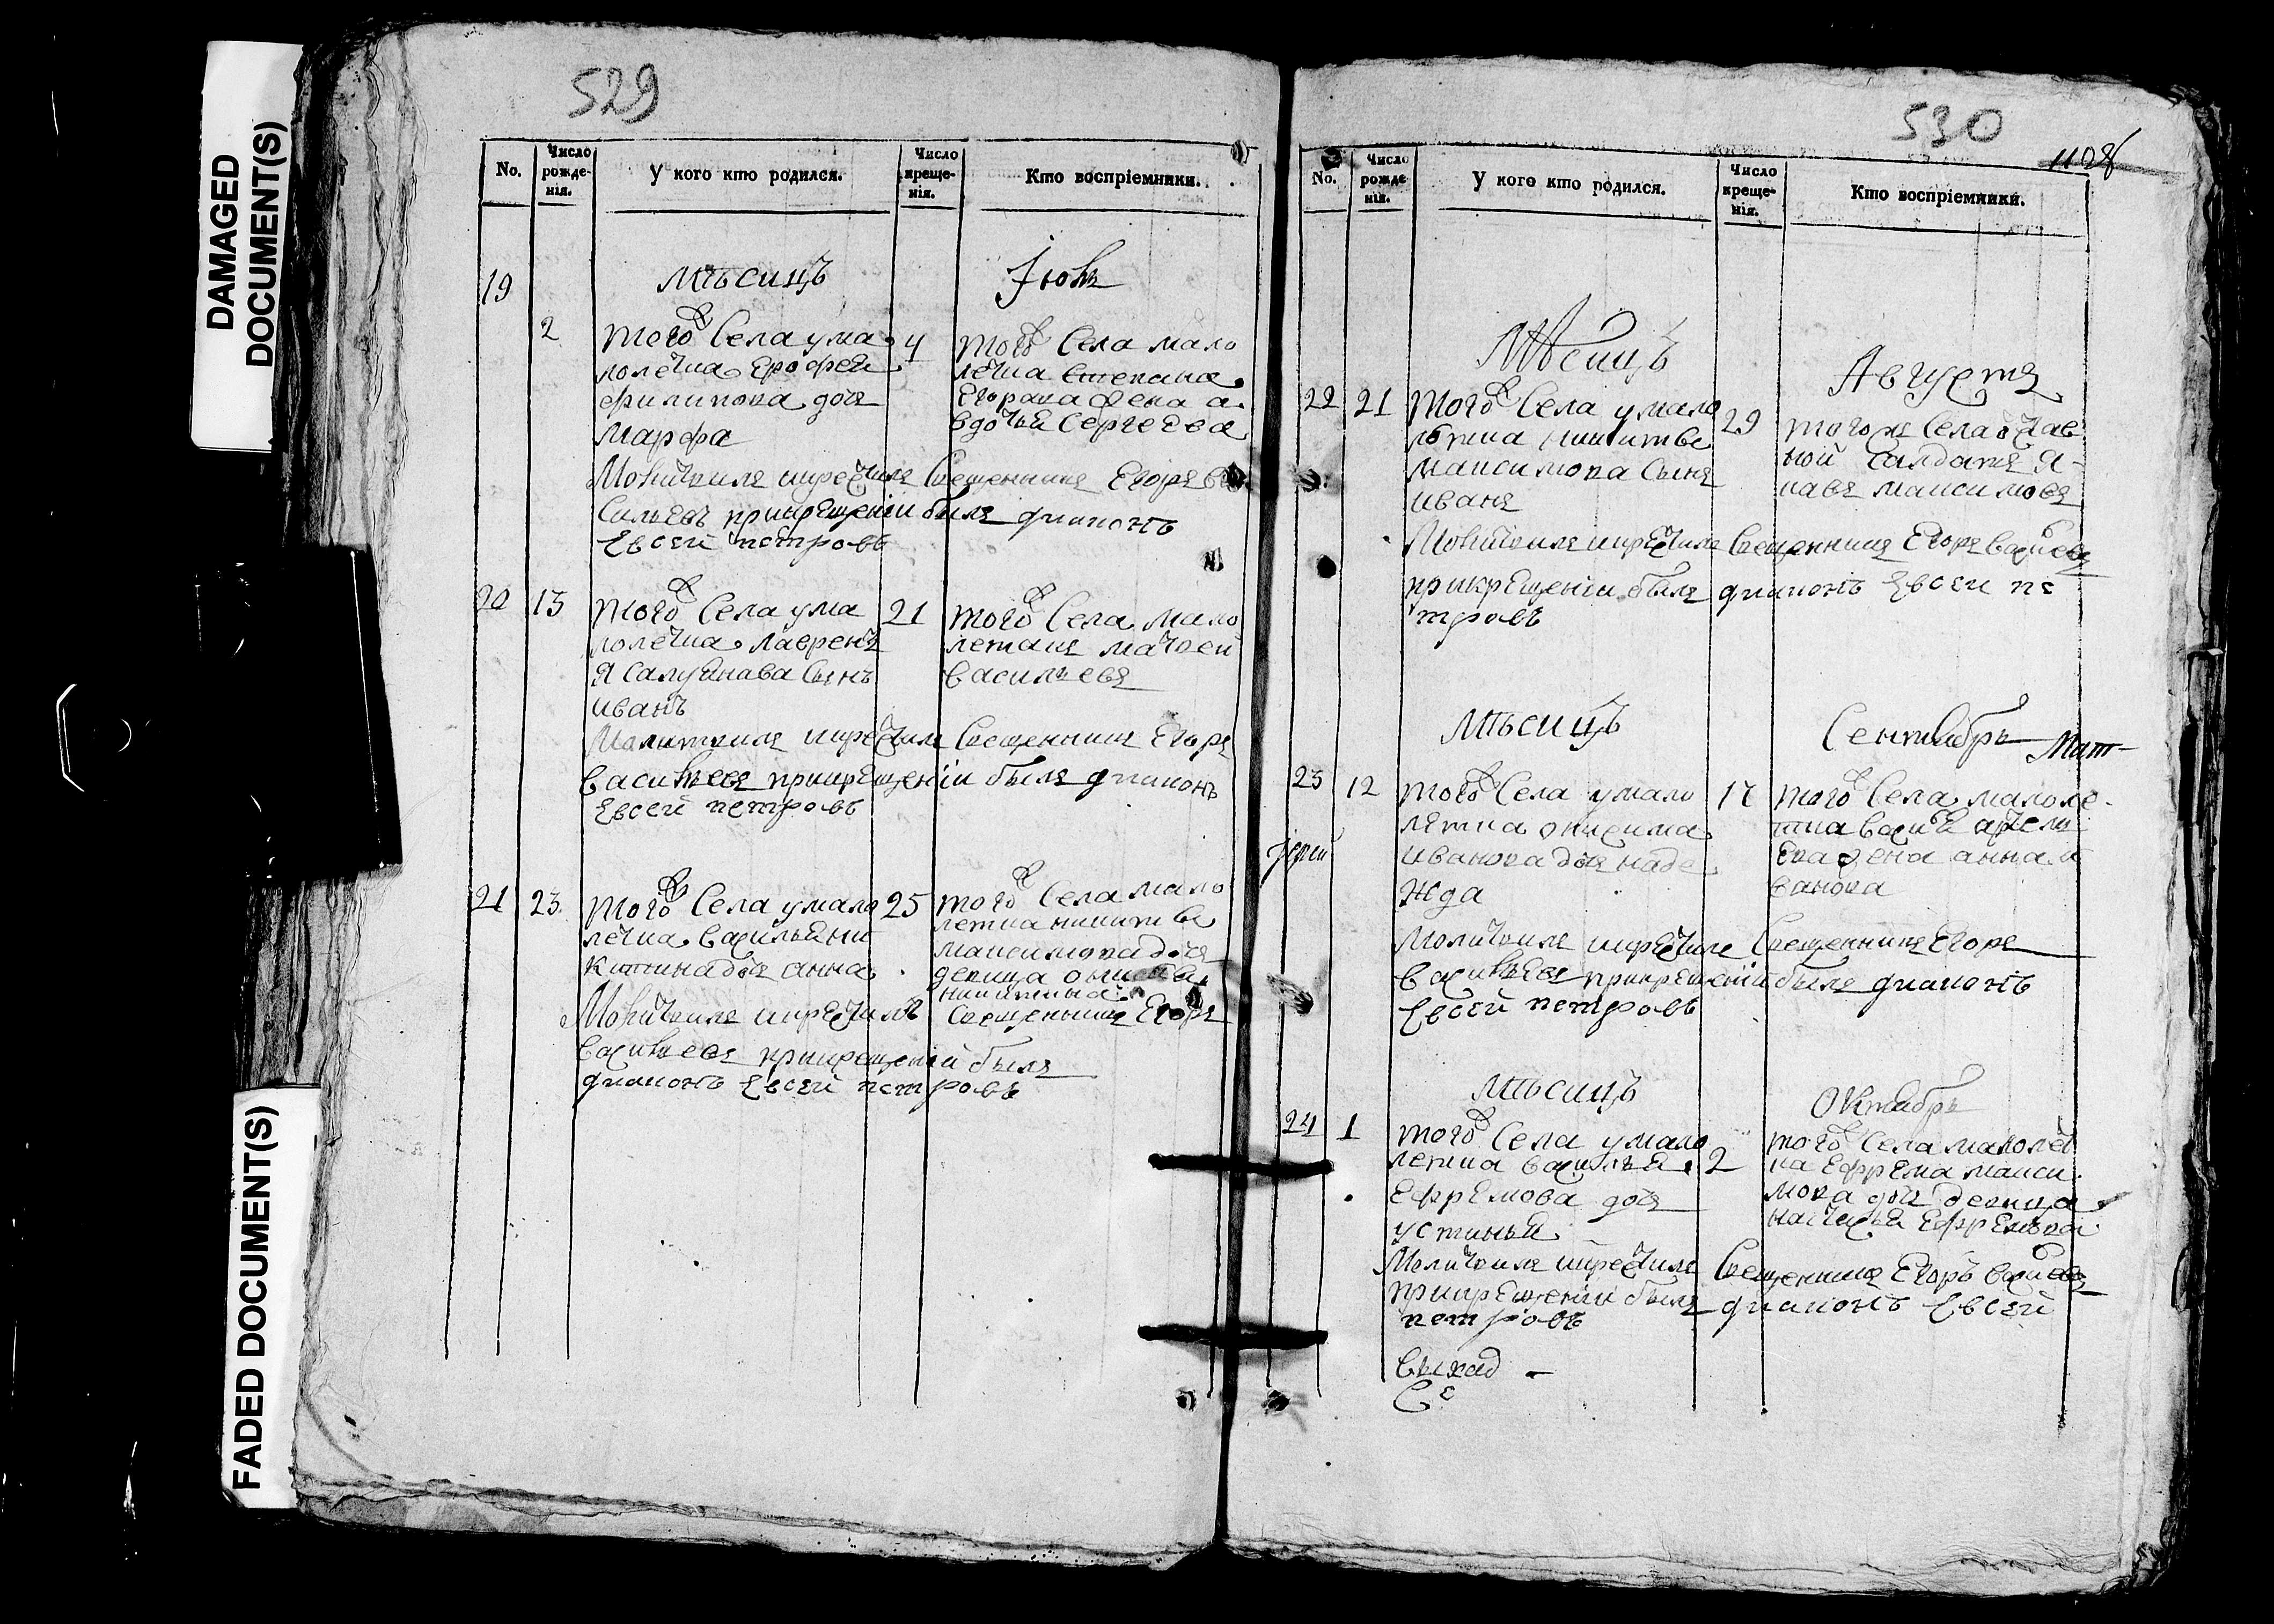 DAMAGED
DOCUMENT(S)
FADED DOCUMENT(S)
529
No.
Число рожде-нія.
У кого кто родился.
Число креще-нія.
Кто воспріемники.
19
мѣсицъ
Іюль
2
того Села ума
лолетна Ерофеи
филипова дочь
марфа
4
того Села мало
летна степана
Егорава жена а
вдотья Сергеева
Молитвилъ икрестилъ Свещенникъ Егоръ ва
сильевъ прикрещеніи былъ диаконъ
Евсей петровъ
20
13
того Села ума
лолетна лаврентъ
я Салуянава Сынъ
иванъ
21
того Села мало
летанъ матвеи
васильевъ
Малитвилъ икрестилъ Свещенникъ Егоръ
васильевъ прикрещеніи былъ диаконъ
Евсей петровъ
21
23
того Села умало
летна василья ни
китина дочь анна
25
того Села мало
летна никиты
максимова дочь
девица
никитина
Молитвилъ икрестилъ Свещенникъ Егоръ
васильевъ прикрещеніи былъ
диаконъ Евсей петровъ
530
1108
No.
Число рожде нія.
У кого кто родился.
Число креще-нія.
Кто воспріемники.
Мѣсицъ
Августъ
22
21
того Села умало
лѣтна никиты
максимова Сынъ
иванъ
29
тогожъ Села отав
ной Салдатъ я-
кавъ максимовъ
Молитвилъ икрестилъ Свещенникъ Егоръ васильевъ
прикрещеніи былъ диаконъ Евсеи пе
тровъ
мѣсицъ
Сентябрь
23
12
того Села умало
летна онисима
иванова дочь наде
жда
17
того Села малоле-
тна васи
ева жена анна и
ванова
Іерей
Молитвилъ икрестилъ Свещенникъ Егоръ
васильевъ прикрещеніи былъ диаконъ
Евсей петровъ
мѣсицъ
Октябрь
24
1
того Села умало
летна василья
Ефремова дочь
устинья
2
того Села малолет
на Ефрема макси
мова дочь девица
настасья Ефремова
Молитвилъ икрестилъ Свещенникъ Егоръ васильевъ
прикрещеніи былъ диаконъ Евсей
петровъ